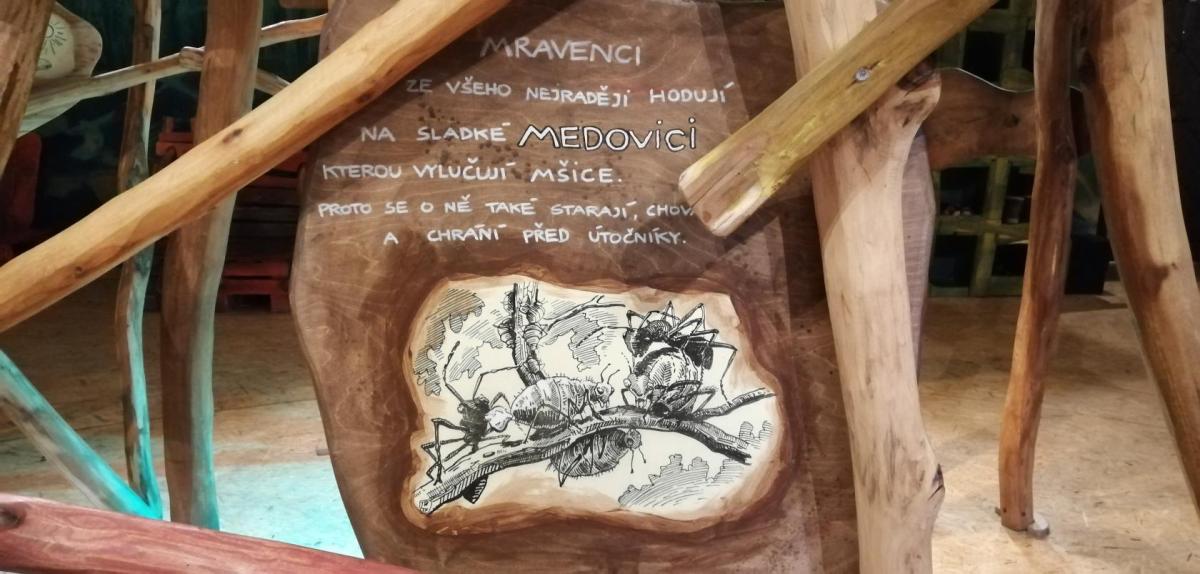 MRAVENCI
ZE VŠEHO NEJRADĚJI HODUJÍ
NA SLADKÉ MEDOVICI
KTEROU VYLUČUJÍ MŠICE.
PROTO SE O NĚ TAKÉ STARAJÍ,
A CHRÁNÍ PŘED ÚTOČNÍKY.